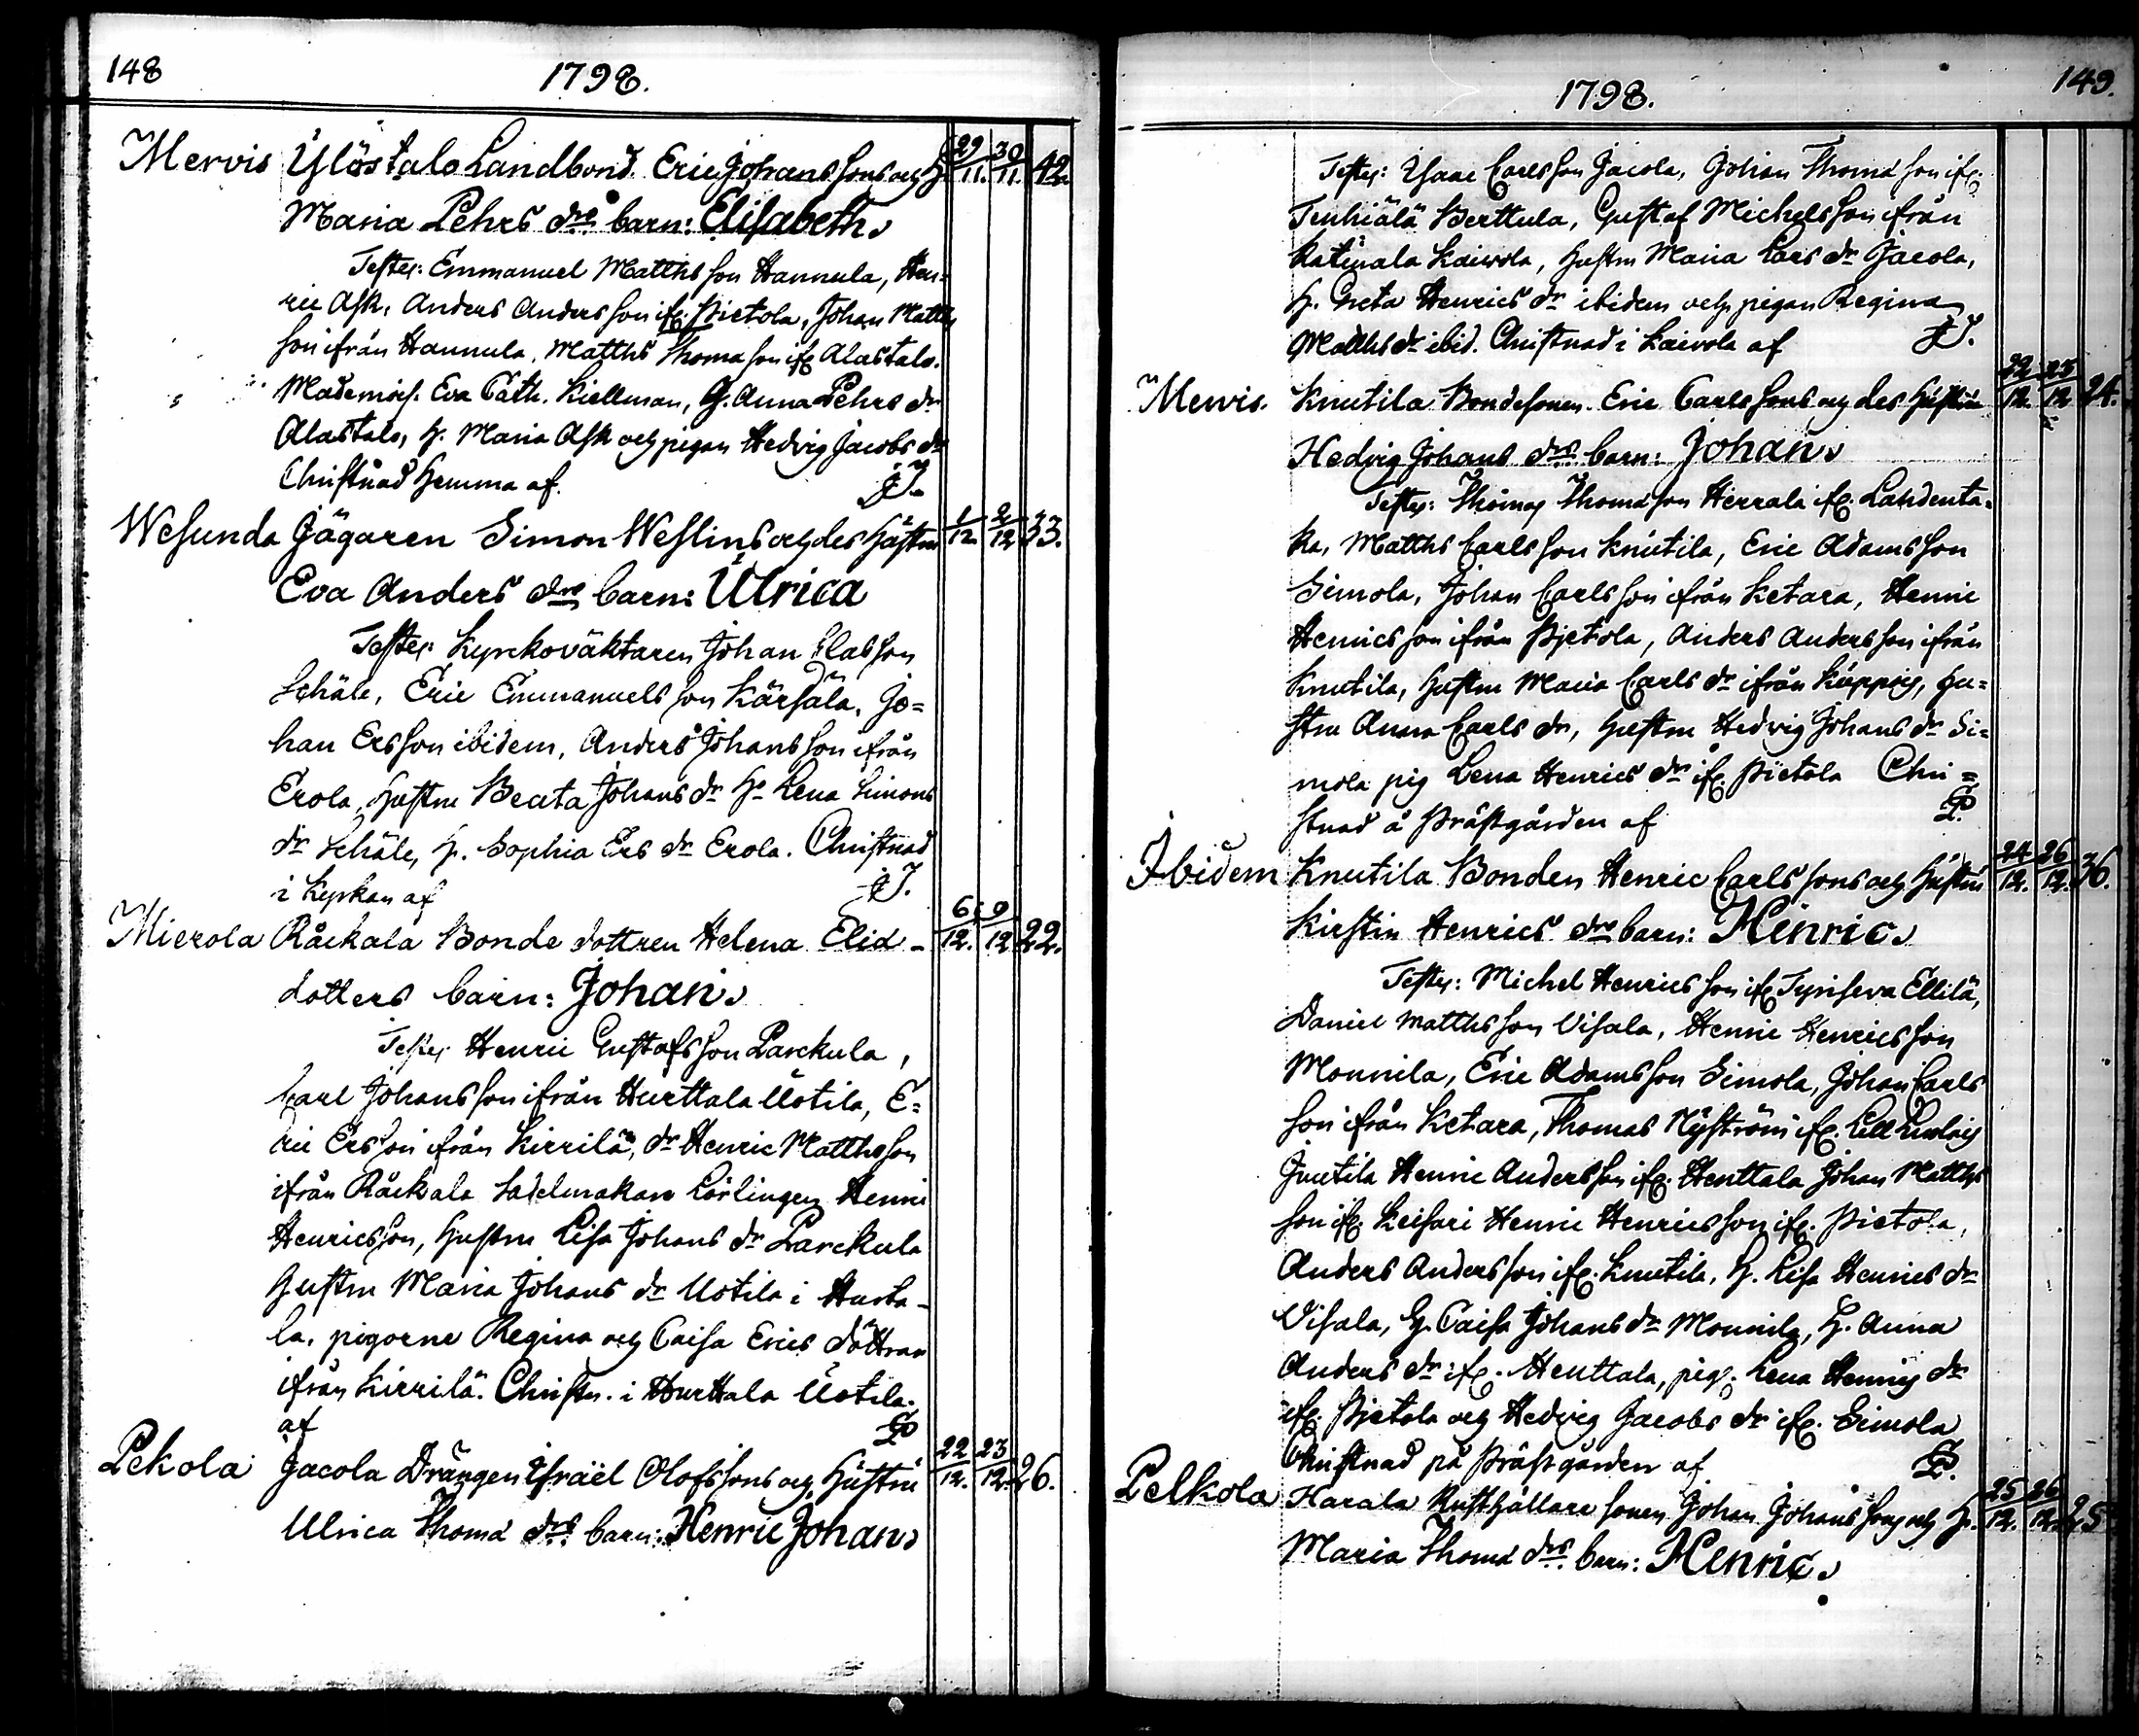 148
1798.
Mervis Ylöstalo Landbond. Eric Johanssons och H. 29/11. 30/11. 42.
Maria Pehrs drs barn: Elisabeth.
Testes: Emmanuel Matthsson Hannula, Hen-
ric Ask, Anders Andersson ifr. Pietola, Johan Matths
son ifrån Hannula, Matths Thomasson ifr Alastalo.
Mademois. Eva Cath. Kiellman, H. Anna Pehrs dr
Alastalo, H. Maria Ask och pigan Hedvig Jacobs dr
Christnad hemma af. JJ.
Wesunda Jägaren Simon Weslins och des Hustru 1/12. 2/12 33.
Eva Anders drs barn: Ulrica
Testes: Kyrkoväktaren Johan
Schäle, Eric Emmanuels son Kärsälä, Jo=
han Ersson ibidem, Anders Johansson ifrån
Erola, Hustru Beata Johans dr Hu Lena Simons
dr Schäle, H. Sophia Ers dr Erola. Christnad
i Kyrkan af JJ.
Mierola Råckala Bonde dottren Helena Elid- 6/12. 9/12 22.
dotters barn: Johan.
Testes Henric Gustafsson Parckula,
Carl Johansson ifrån Hurttala Uotila, E=
ric Ersson ifrån Kirrilä, dr Henric Matthsson
ifrån Råckala Sadelmakare Henric
Henricsson, Hustru Lisa Johans dr Parckula
Hustru Maria Johans dr Uotila i Hurta-
la, pigorne Regina och Caisa Erics döttrar
ifrån Kirrilä. Christn. i Hurttala Uotila.
af
Pekola Jacola Drängen Israël Olofssons och Hustru 22/12. 23/12. 26.
Ulrica Thomæ drs barn: Henric Johan.
1798.
149.
Testes: Isaac Carlsson Jacola, Johan Thomæ son ifr.
Tenhiälä Berttula, Gustaf Michelsson ifrån
Katinala Kaivola, Hustru Maria Lars dr Jacola,
H. Greta Henrics dr ibidem och pigan Regina
Matths dr ibid. Christnad i Kaivola af JJ.
Mervis. Knutila Bondesonen Eric Carlssons och des Hustru 22/12. 23/12 24.
Hedvig Johans drs barn: Johan.
Testes: Thomas Thomæ son Herrala ifr. Landenta-
ka, Matths Carlsson Knutila, Eric Adamsson
Simola, Johan Carlsson ifrån Ketara, Henric
Henricsson ifrån Pietola, Anders Andersson ifrån
Knutila, Hustru Maria Carls dr ifrån Kåppois, Hu=
stru Anna Carls dr, Hustru Hedvig Johans dr Si=
mola pig Lena Henrics dr ifr Pietola Chri=
stnad å Prästgården af
Ibidem Knutila Bonden Henric Carlssons och Hustru 24/12. 26/12. 36.
Kirstin Henrics drs barn: Henric.
Testes: Michel Henricsson ifr Tyrisevä Ellilä,
Daniel Matthsson Visala, Henric Henricsson
Monnila, Eric Adamsson Simola, Johan Carls
son ifrån Ketara, Thomas Nyström ifr. Lill
Juutila Henric Andersson ifr. Henttala Johan Matths
son ifr. Keisari Henric Henricsson ifr. Pietola,
Anders Andersson ifr. Knutila, H. Lisa Henrics dr
Visala, H. Caisa Johans dr Monnila, H. Anna
Anders dr ifr. Henttala, pig. Lena Henrics dr
ifr. Pietola och Hedvig Jacobs dr ifr. Simola
Christnad på Prästgården af
Pelkola Harala Rusthållare sonen Johan Johanssons och H. 25/12. 26/12. 25
Maria Thomæ drs barn: Henric.